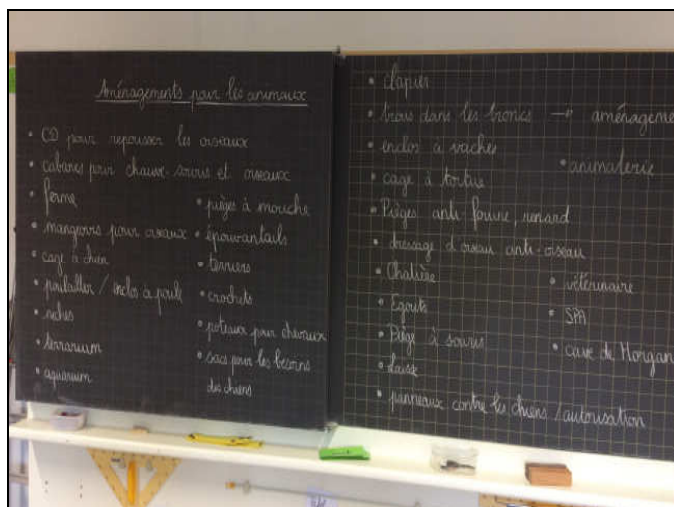 Aménagements pour les animaux
• CD pour repousser les oiseaux
• cabanes pour chauve-souris et oiseaux
• ferme
• mangeoirs pour oiseaux
• cage à chien
• poulailler / enclos à poule
• niches
• terrarium
• aquarium
• pièges à mouche
• épouvantails
• terriers
• crochets
• poteaux pour chevaux
• sacs pour les besoins
des chiens
• clapier
• trous dans les troncs → aménageme
• enclos à vaches
• animalerie
• cage à tortue
• Pièges anti-fouine, renard
• dressage d'oiseau anti-oiseau
• Chatière
• Egouts
• Piège à souris
• laisse
• vétérinaire
• SPA
• cave de Morgan
• panneaux contre les chiens / autorisation